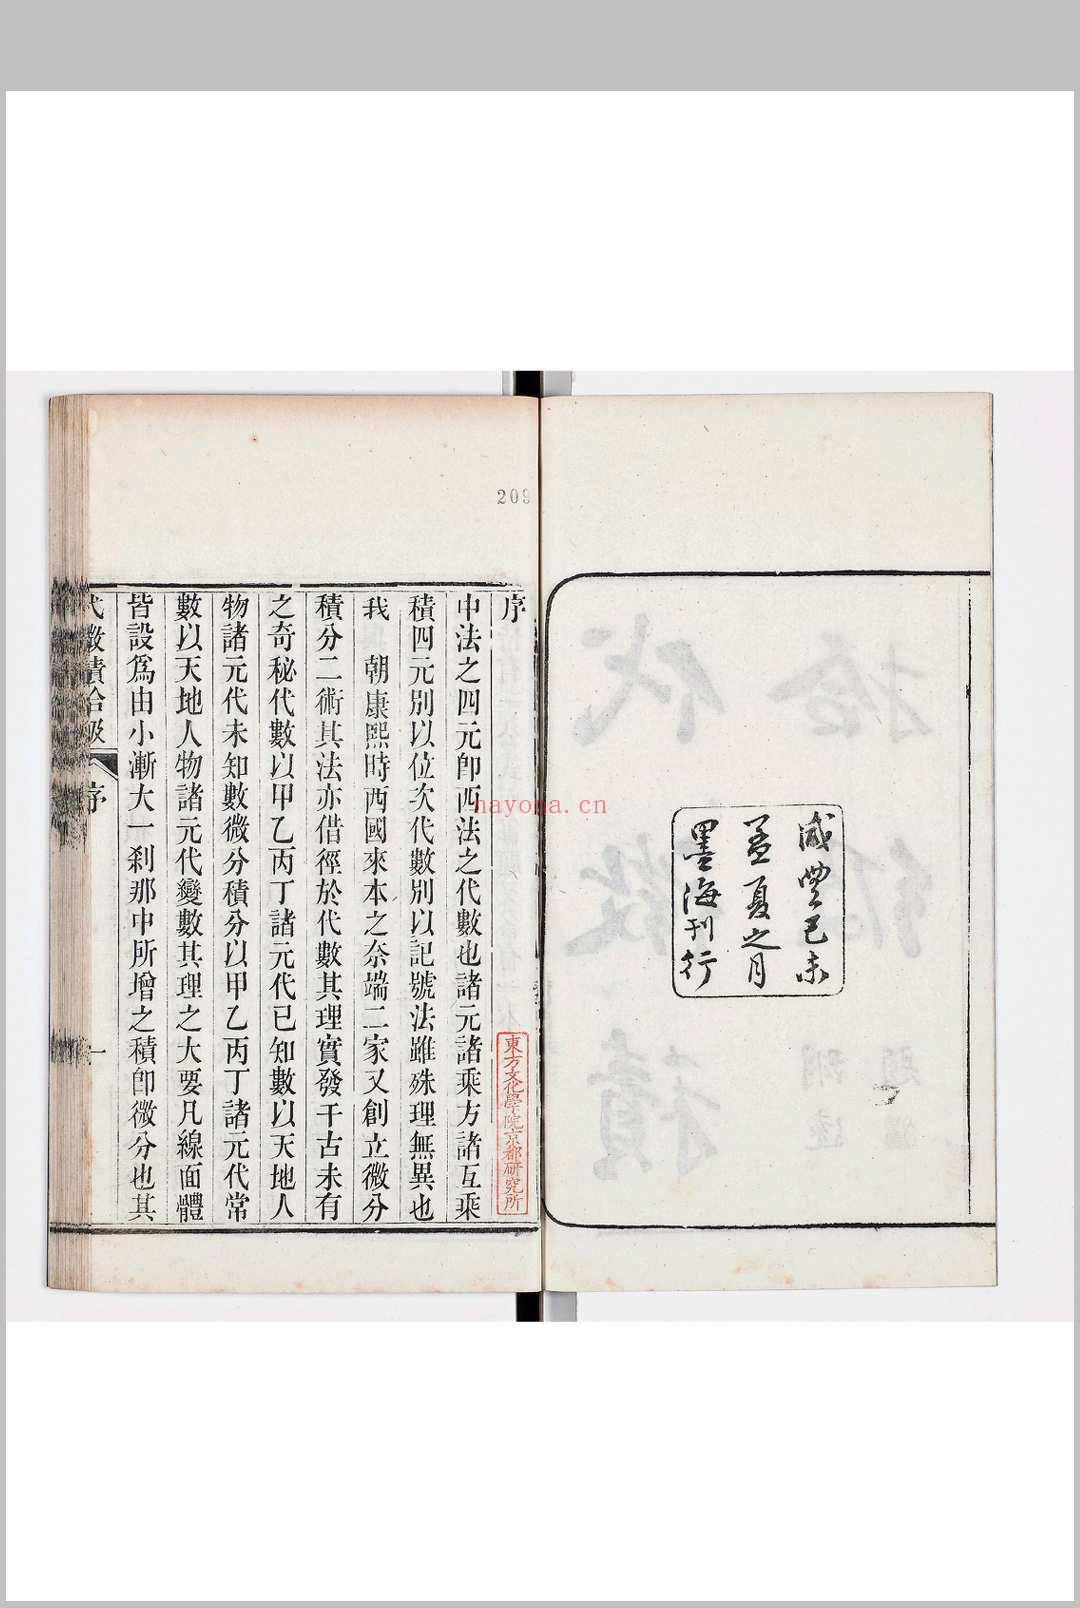 咸豐己未
孟夏之月
墨海刊行
209
序
東方文化學院京都研究所
中法之四元卽西法之代數也諸元諸乘方諸互乘
積四元別以位次代數別以記號法雖殊理無異也
我　朝康熙時西國來本之奈端二家又創立微分
積分二術其法亦借徑於代數其理實發千古未有
之奇秘代數以甲乙丙丁諸元代已知數以天地人
物諸元代未知數微分積分以甲乙丙丁諸元代常
數以天地人物諸元代變數其理之大要凡線面體
皆設爲由小漸大一刹那中所增之積卽微分也其
代微積拾級
序
一
nayona.cn